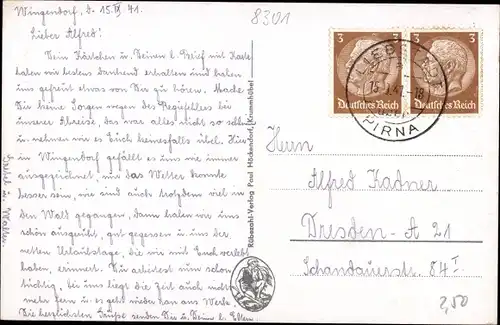 Wingendorf, d. 15.IX.41.
8301
Lieber Alfred!
Dein Kärtchen u. Deinen l. Brief mit Karte
haben wir bestens dankend erhalten und haben
uns gefreut etwas von Dir zu hören. Mache
Dir keine Sorgen wegen des
unserer Abreise, das war alles nicht so schlimm
u. nehmen wir es Euch keinesfalls übel. Hier
in Wingendorf gefällt es uns wie immer
ausgezeichnet, nur das Wetter konnte
besser sein, wir sind auch trotzdem viel in
den Wald gegangen, dann haben wir uns
schön ausgeruht, gut gegessen u. uns der
netten Urlaubstage, die wir mit Euch verlebt
haben, erinnert. Du arbeitest nun schon
tüchtig, bei uns liegt die Zeit auch nicht
mehr fern u. es geht wieder ran ans Werk.
Die herzlichsten Grüße senden Dir u. Deinen lb. Eltern
u. Walter.
Rübezahl-Verlag Paul Höckendorf, Krummhübel
3 3
Deutsches Reich Deutsches Reich
PIRNA
Herrn
Alfred Kadner
Dresden - A 21
Schandauerstr. 84 I
2,50